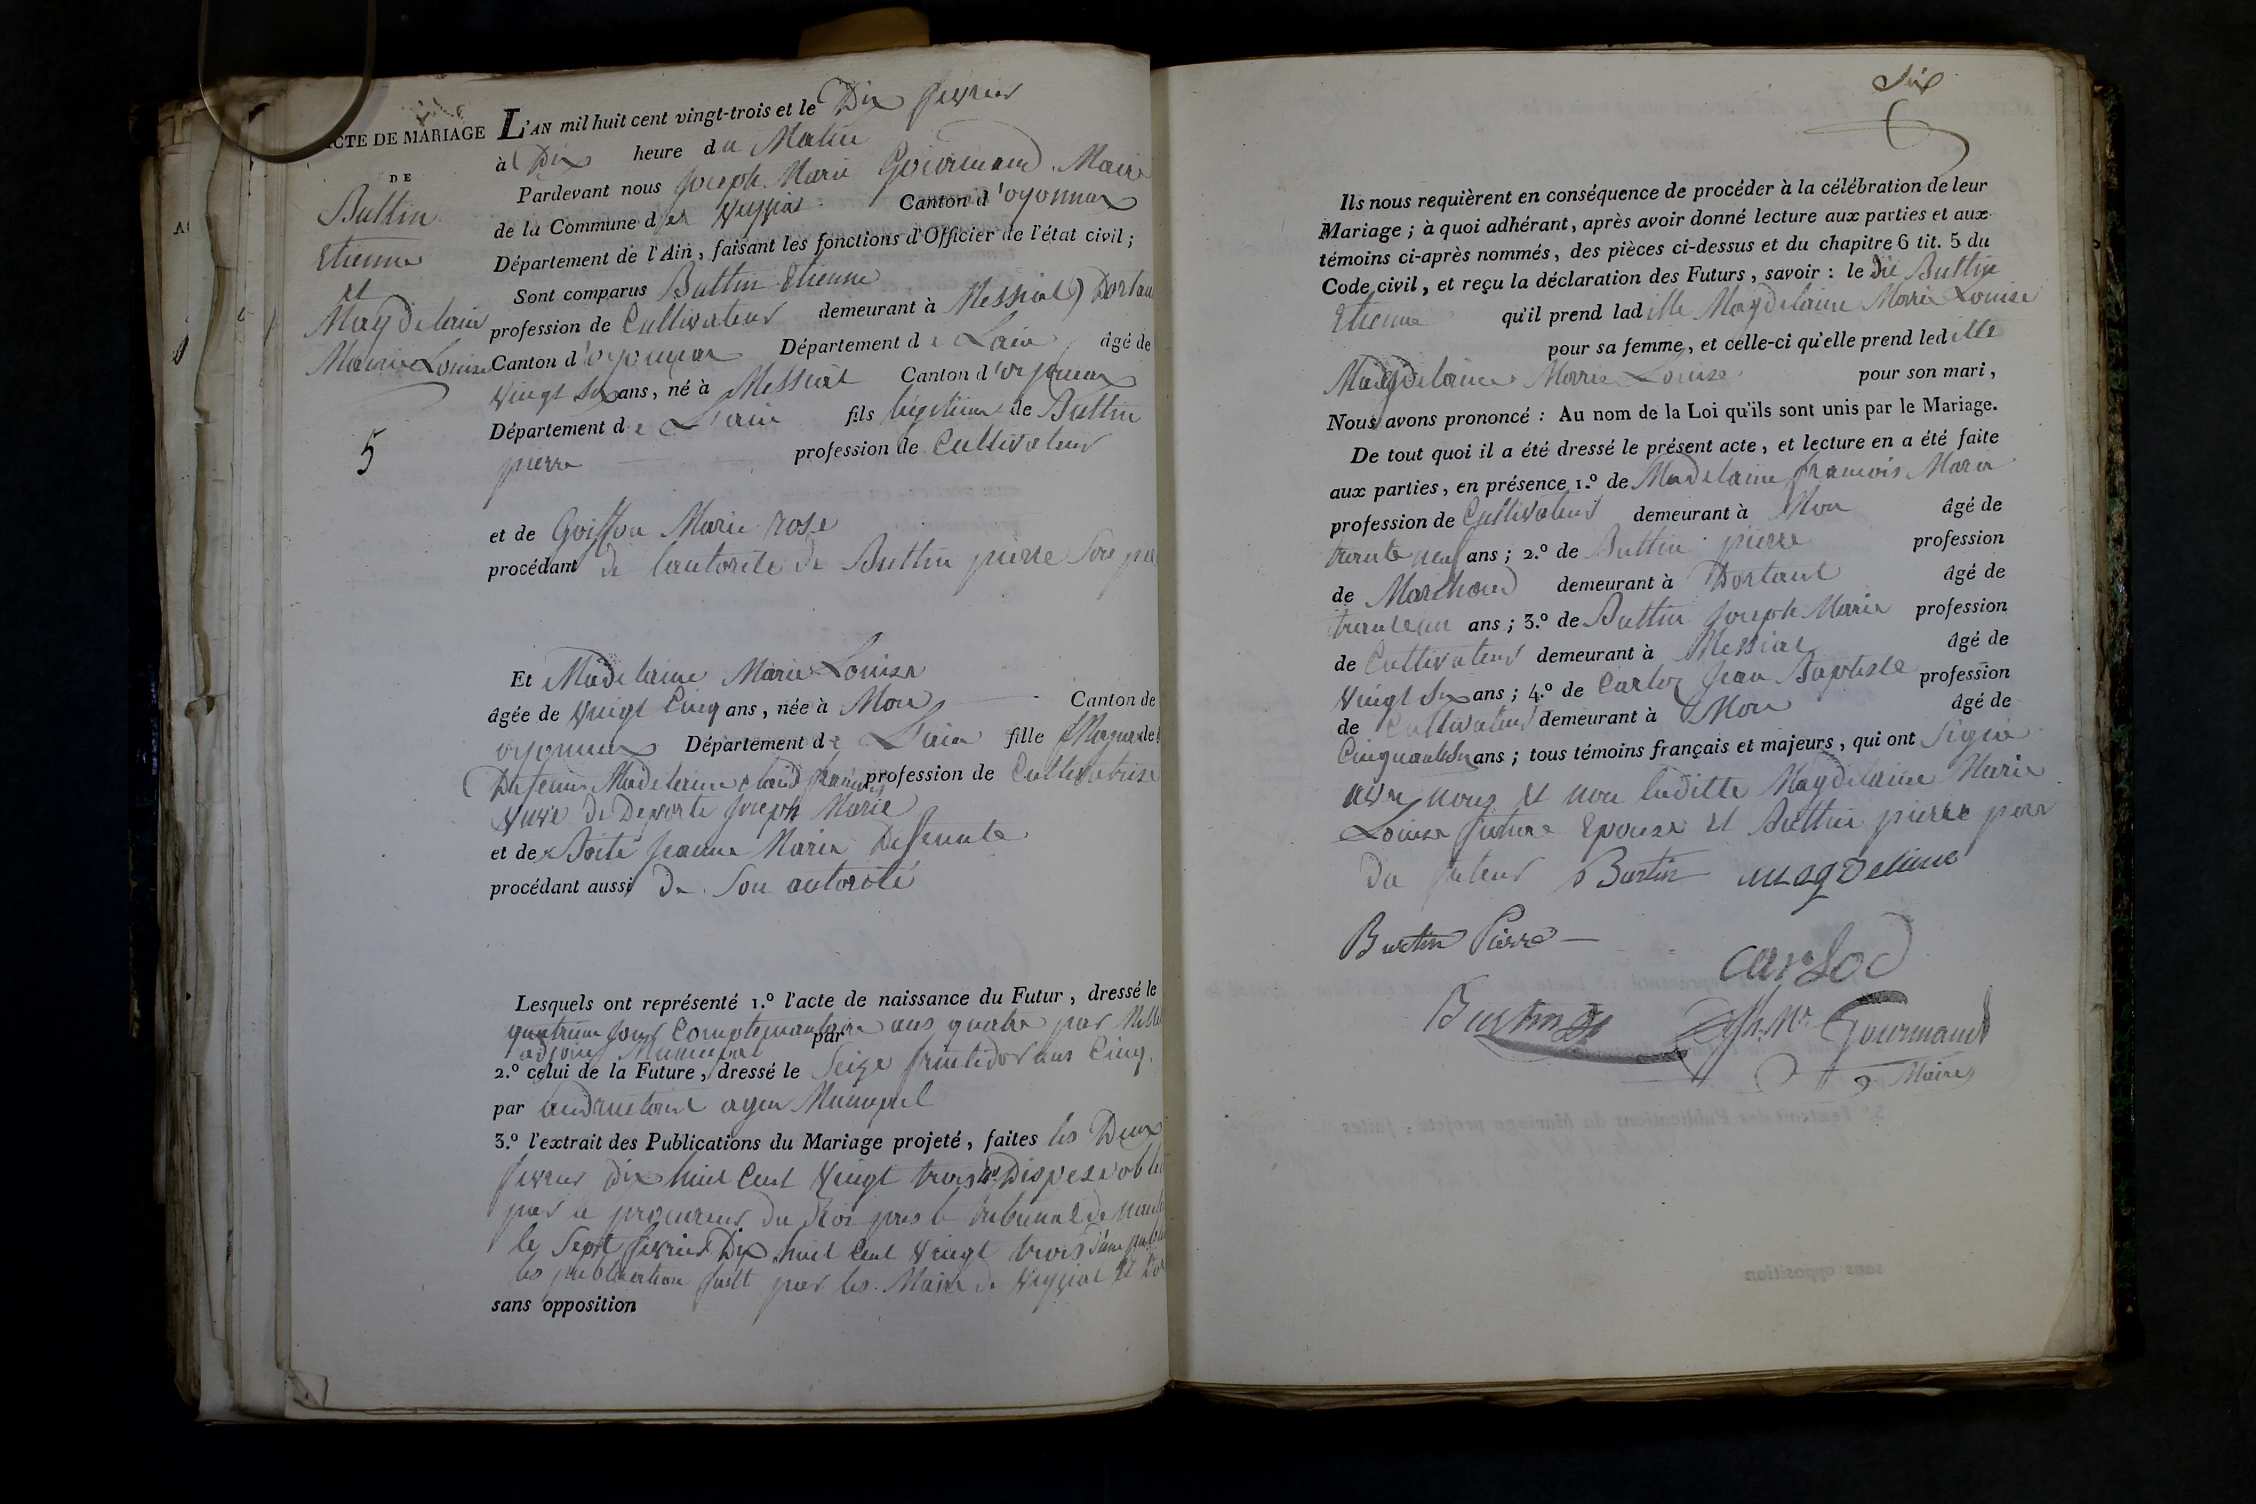 ACTE DE MARIAGE
DE
Buttin
Etienne
et
Magdelaine
Marie Louise
5
L'AN mil huit cent vingt-trois et le Dix fevrier
à Dix heure du Matin
Pardevant nous Joseph Marie Gourmand Maire
de la Commune de Veyziat Canton d'oyonnax
Département de l'Ain, faisant les fonctions d'Officier de l'état civil;
Sont comparus Buttin Etienne
profession de Cultivateur demeurant à Messiat) Dortan
Canton d'oyonnax Département de Lain âgé de
vingt six ans, né à Messiat Canton d'oyonnax
Département de L'ain fils légitime de Buttin
pierre profession de Cultivateur
et de Goiffon Marie rose
procédant de lautorité de Buttin pierre Son
Et Madelaine Marie Louise
âgée de vingt Cinq ans, née à Mons Canton de
oyonnax Département de L'ain fille de
Madelaine Claud francois profession de Cultivatrise
veuve de Deporte Joseph Marie
et de Jeanne Marie Defunte
procédant aussi de Son autorité
Lesquels ont représenté 1.º l'acte de naissance du Futur, dressé le
jour ans quatre par
adjoint Municipal par
2.º celui de la Future, dressé le Seize fruitidor ans Cinq.
par agen Municipal
3.º l'extrait des Publications du Mariage projeté, faites les Deux
fevrier Dix huit Cent Vingt trois
par le procureur du Roi pres le tribunal de
le Sept fevrier Dix huit Cent Vingt trois
les publication fait par les Maire de Veyziat et
sans opposition
Six
Ils nous requièrent en conséquence de procéder à la célébration de leur
Mariage; à quoi adhérant, après avoir donné lecture aux parties et aux
témoins ci-après nommés, des pièces ci-dessus et du chapitre 6 tit. 5 du
Code civil, et reçu la déclaration des Futurs, savoir: le dit Buttin
Etienne qu'il prend ladille Magdelaine Marie Louise
pour sa femme, et celle-ci qu'elle prend leditte
Magdelaine Marie Louise pour son mari,
Nous avons prononcé: Au nom de la Loi qu'ils sont unis par le Mariage.
De tout quoi il a été dressé le présent acte, et lecture en a été faite
aux parties, en présence 1.º de Madelaine francois Marie
profession de Cultivateur demeurant à Mon âgé de
trante neuf ans; 2.º de Buttin pierre profession
de Marchand demeurant à Dortant âgé de
ans; 3.º de Buttin Joseph Marie profession
de Cultivateur demeurant à Messiat âgé de
vingt Six ans; 4.º de Carloz Jean Baptiste profession
de Cultivateur demeurant à Mon âgé de
ans; tous témoins français et majeurs, qui ont Signé
avec nous et non laditte Magdelaine Marie
Louise future Epouse et Buttin pierre pere
du futeur Burtin magdeline
Burtin Pierre
carloz
Burtin
Jh. Mie Gourmand
Maire